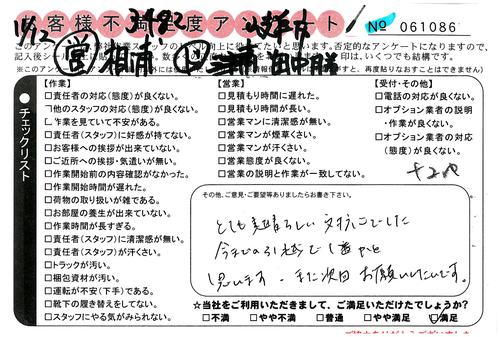 お客様不満足度アンケート
№ 061086
記入後シールに貼
印は、いくつでも結構です。
チェックリスト
【作業】
□責任者の対応(態度)が良くない。
□他のスタッフの対応(態度)が良くない。
□作業を見ていて不安がある。
□責任者(スタッフ)に好感が持てない。
□お客様への挨拶が出来ていない。
□ご近所への挨拶・気遣いが無い。
□作業開始前の内容確認がなかった。
□作業開始時間が遅れた。
□荷物の取り扱いが雑である。
□お部屋の養生が出来ていない。
□作業時間が長すぎる。
□責任者(スタッフ)に清潔感が無い。
□責任者(スタッフ)が汗くさい。
□トラックが汚い。
□梱包資材が汚い。
□運転が不安(下手)である。
□靴下の履き替えをしてない。
□スタッフにやる気がみられない。
【営業】
□見積もり時間に遅れた。
□見積もり時間が長い。
□営業マンに清潔感が無い。
□営業マンが煙草くさい。
□営業マンが汗くさい。
□営業態度が良くない。
□営業の説明と作業が一致してない。
【受付・その他】
□電話の対応が良くない。
□オプション業者の説明
・作業が良くない。
□オプション業者の対応
(態度)が良くない。
その他、ご意見・ご要望等ありましたらお書き下さい。
とても素晴らしい対応でした
今までの引越で1番かと
思います。また次回お願いしたいです。
☆当社をご利用いただきまして、ご満足いただけたでしょうか?
□不満 □やや不満 □普通 □やや満足 □満足